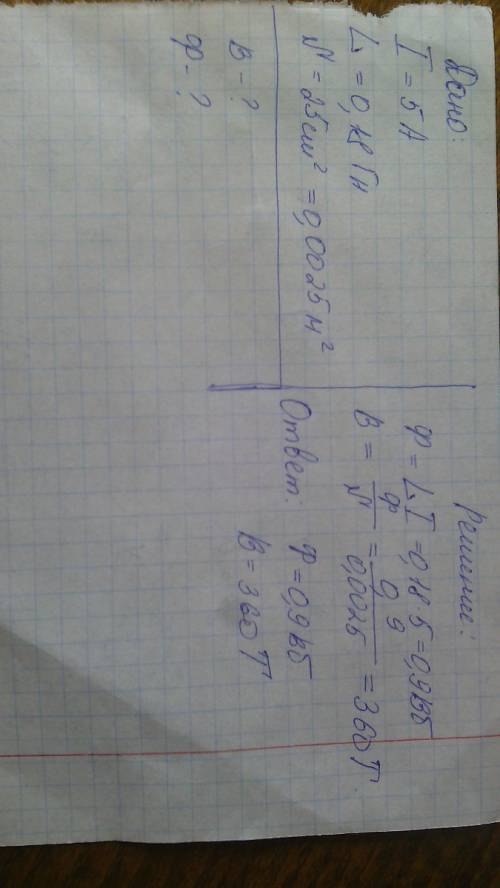 Дано:
I = 5 А
L = 0,18 Гн
S = 25 см² = 0,0025 м²
B - ?
Ф - ?
Решение:
Ф = LI = 0,18·5 = 0,9 Вб
B = Ф/S = 0,9/0,0025 = 360 Т
Ответ: Ф = 0,9 Вб
B = 360 Т